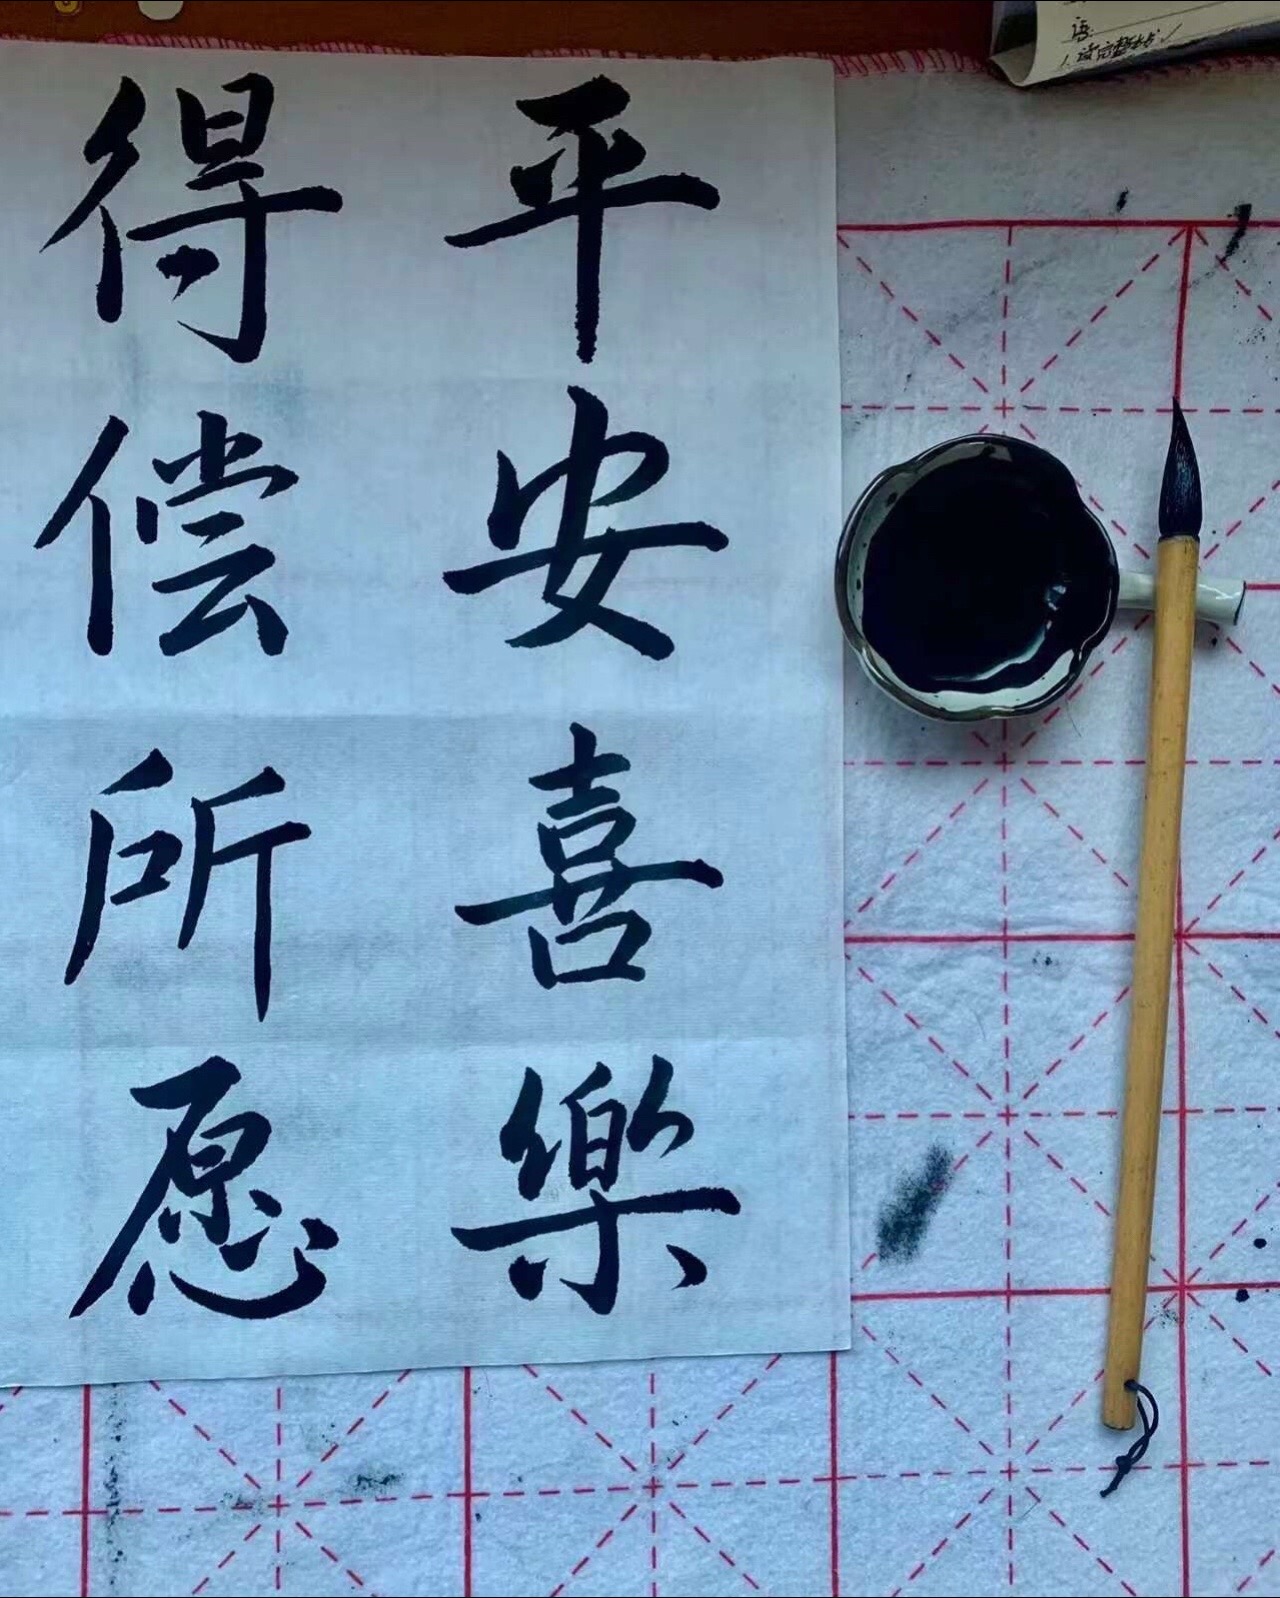 平安喜樂
得偿所愿